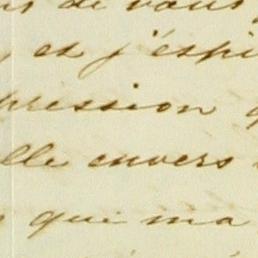 de vous
, et j'espè
pression
elle envers
que ma